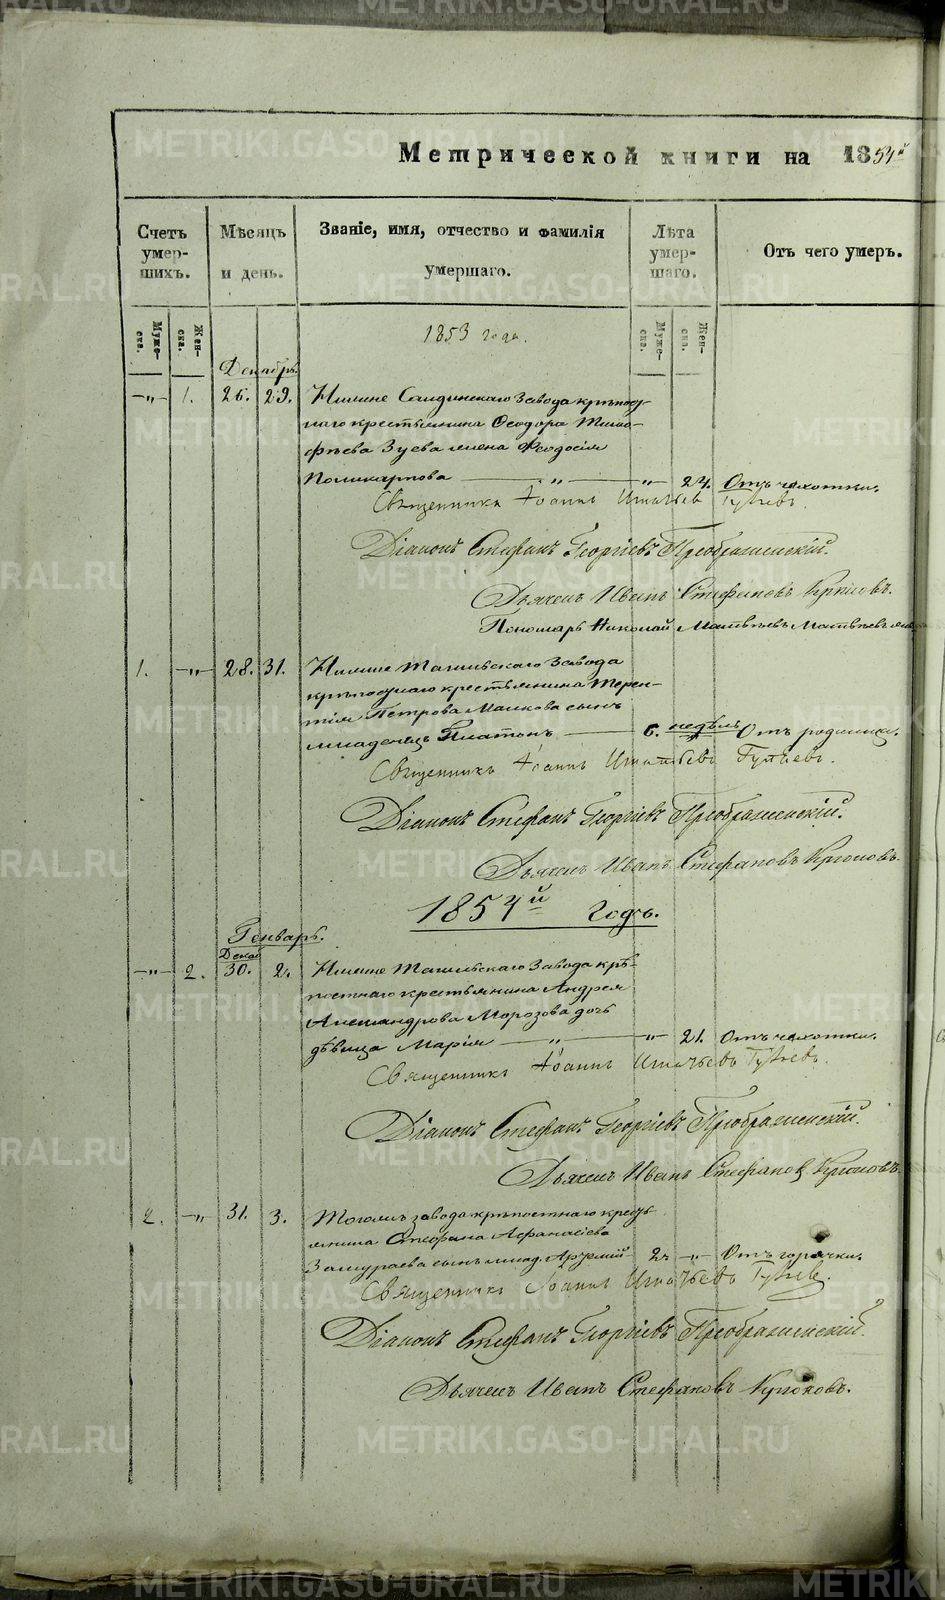 Метрической книги на 1854й
Счетъ умерших. Мѣсяцъ и день. Званіе, имя, отчество и фамилія умершаго. Лѣта умершаго. Отъ чего умеръ.
Мужеска. Женска. Мужеска. Женска.
1853 года.
Декабрь.
—"— 1. 26. 29. Нижне Салдинскаго Завода крѣпост-
наго крестьянина Ѳеодора Тимо-
фѣева Зуева жена Феодосія
Поликарпова — " — " — 24. Отъ чахотки.
Священникъ Іоаннъ Игнатьевъ
Діаконъ Стефанъ Георгіевъ Преображенскій.
Дьячекъ Иванъ Стефановъ Крюковъ.
Пономарь Николай Матвѣевъ
1. —"— 28. 31. Нижне Тагильскаго Завода
крѣпостнаго крестьянина Терен-
тія Петрова Малкова сынъ
младенецъ Платонъ — 6. недѣль Отъ родимца.
Священникъ Іоаннъ Игнатьевъ
Діаконъ Стефанъ Георгіевъ Преображенскій.
Дьячекъ Иванъ Стефановъ Крюковъ.
1854й годъ.
Генварь.
Декаб
—"— 2. 30. 2. Нижне Тагильскаго Завода крѣ-
постнаго крестьянина Андрея
Александрова Морозова дочь
дѣвица Марія — " — " — 21. Отъ чахотки.
Священникъ Іоаннъ Игнатьевъ
Діаконъ Стефанъ Георгіевъ Преображенскій.
Дьячекъ Иванъ Стефановъ Крюковъ.
2. —"— 31. 3. Тогожъ завода крѣпостнаго крестья-
янина Стефана Афанасіева
сынъ млад. 2. —"— Отъ горячки.
Священникъ Іоаннъ Игнатьевъ
Діаконъ Стефанъ Георгіевъ Преображенскій.
Дьячекъ Иванъ Стефановъ Крюковъ.
METRIKI.GASO-URAL.RU